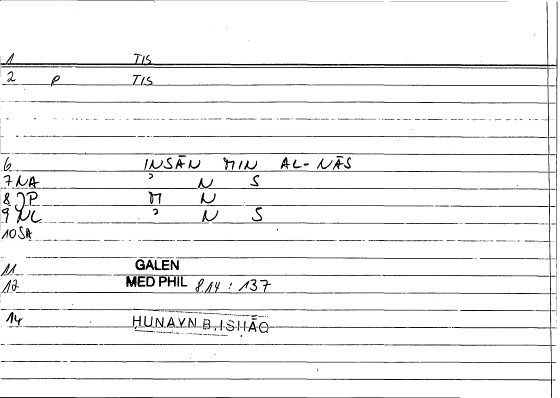 1 TIS
2 P TIS
6 INSĀN MIN AL-NĀS
7 NA ʾ N S
8 JP M N
9 NL ʾ N S
10 SA
11 GALEN
12 MED PHIL 8.14 : 137
14 HUNAYN B. ISHĀQ